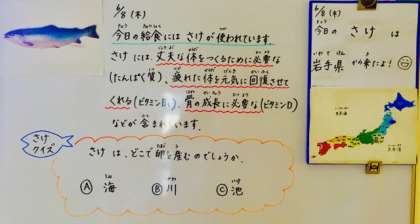 6/8 (木)
今日の給食には さけが使われています。
さけ には、丈夫な体をつくるために必要な
(たんぱく質)、疲れた体を元気に回復させて
くれる(ビタミンB₁)、骨の成長に必要な(ビタミンD)
などが含まれています。
さけ
クイズ
さけ は、どこで卵を産むのでしょうか。
Ⓐ 海 Ⓑ 川 Ⓒ 池
6/8 (木)
今日の さけ は
岩手県から来たよ!